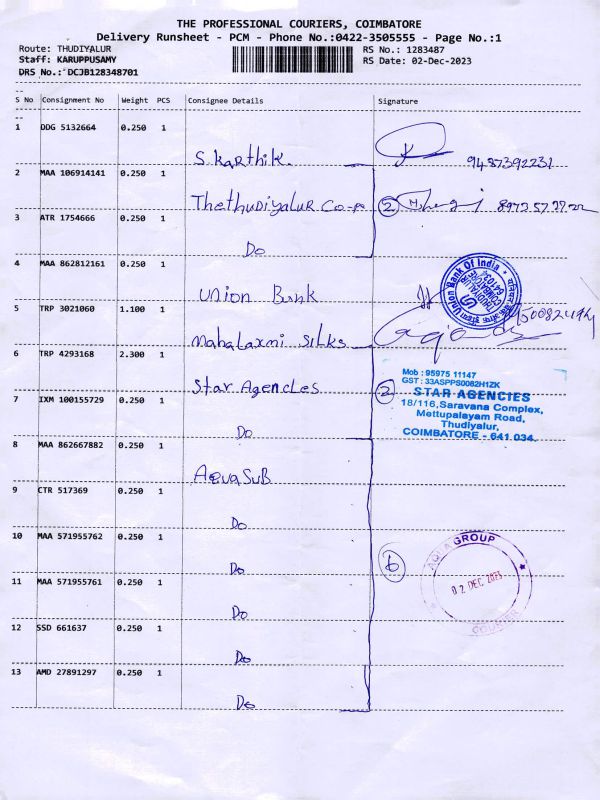 THE PROFESSIONAL COURIERS, COIMBATORE
Delivery Runsheet - PCM - Phone No.:0422-3505555 - Page No.:1
Route: THUDIYALUR
RS No.: 1283487
Staff: KARUPPUSAMY
RS Date: 02-Dec-2023
DRS No.: DCJB128348701
S No Consignment No Weight PCS Consignee Details Signature
1 DDG 5132664 0.250 1
S. Karthik. 9487392231
2 MAA 106914141 0.250 1
Thethudiyalur Co-p (2)
3 ATR 1754666 0.250 1
Do
4 MAA 862812161 0.250 1
Union Bank
Union Bank Of India
5 TRP 3021060 1.100 1
Mahalaxmi Silks
6 TRP 4293168 2.300 1
Star Agencies
7 IXM 100155729 0.250 1
Do
(2)
Mob : 95975 11147
GST : 33ASPPS0082H1ZK
STAR AGENCIES
18/116, Saravana Complex,
Mettupalayam Road,
Thudiyalur,
COIMBATORE - 641 034.
8 MAA 862667882 0.250 1
Aqua Sub
9 CTR 517369 0.250 1
Do
10 MAA 571955762 0.250 1
Do
11 MAA 571955761 0.250 1
Do
12 SSD 661637 0.250 1
Do
13 AMD 27891297 0.250 1
Do
(6)
AQUA GROUP
02 DEC 2023
COURIER